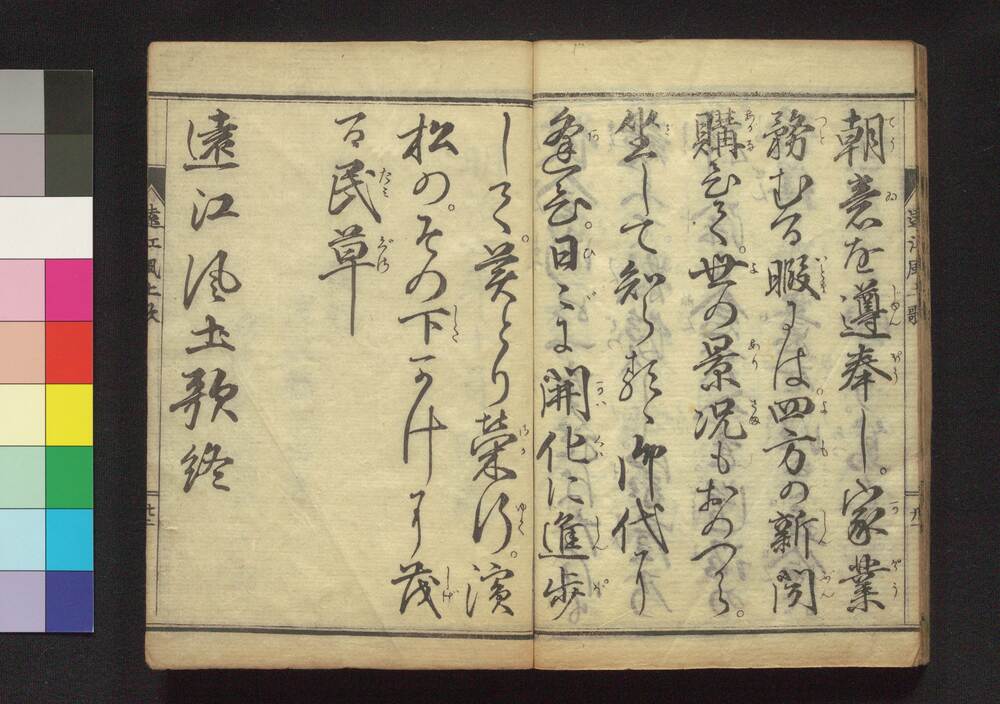 朝意を遵奉し。家業
務むる暇には。四方の新聞
購ひて。世の景況もおのつから。
坐して知らるゝ御代に
逢ひ。日々に開化に進歩
して。とり栄行。濱
松の。その下かけに茂
る民草
遠江風土歌終
遠江風土歌
遠江風土歌